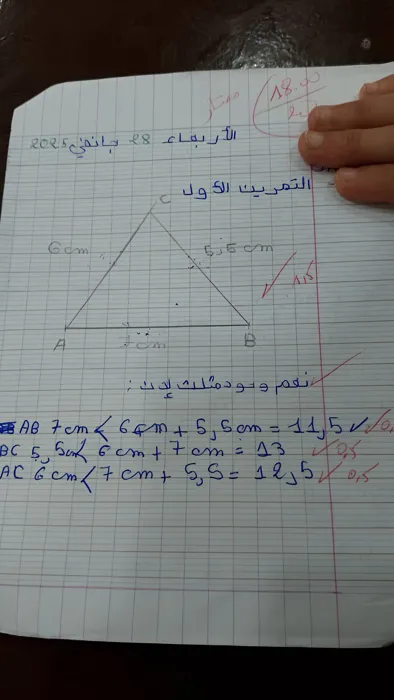 ممتاز
18.00
20
الأربعاء 28 جانفي 2025
التمرين الأول
C
6cm
5,5cm
1,5
7cm
A
B
نعم وجود مثلث لأن :
AB 7cm < 6cm + 5,5cm = 11,5 0,5
BC 5,5cm < 6cm + 7cm = 13 0,5
AC 6cm < 7cm + 5,5 = 12,5 0,5